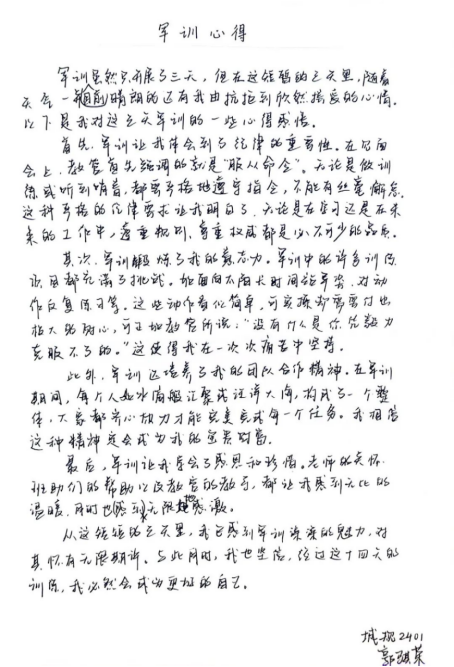 军训心得
军训虽然只开展了三天，但在这短暂的三天里，随着
天空一朝 晴朗的还有我由抗拒到欣然接受的心情。
以下是我对这三天军训的一些心得感悟。
首先，军训让我体会到了纪律的重要性。在见面
会上，教官首先强调的就是"服从命令"。无论是做训
练或听到哨音，都要严格地遵守指令，不能有丝毫懈怠。
这种严格的纪律要求让我明白了，无论是在学习还是在未
来的工作中，遵重规则、尊重权威都是必不可少的品质。
其次，军训锻炼了我的意志力。军训中的许多训练
项目都充满了挑战。如面向太阳长时间站军姿，对动
作反复练习等，这些动作看似简单，可实操却需要付出
极大的耐心，可正如教官所说："没有什么是你凭毅力
克服不了的。"这使得我在一次次痛苦中坚持。
此外，军训还培养了我的团队合作精神。在军训
期间，每个人如水滴般汇聚成汪洋大海，构成了一个整
体，大家都齐心协力才能完美完成每一个任务。我相信
这种精神定会成为我的宝贵财富。
最后，军训让我学会了感恩和珍惜。老师的关怀
班助们的帮助以及教官的教导，都让我感到无比的
温暖，同时也感到无限地感激。
从这短短的三天里，我已感到军训深深的魅力，对
其怀有无限期许。与此同时，我也坚信，经过这十四天的
训练，我必然会成为更好的自己。
城规2401
郭